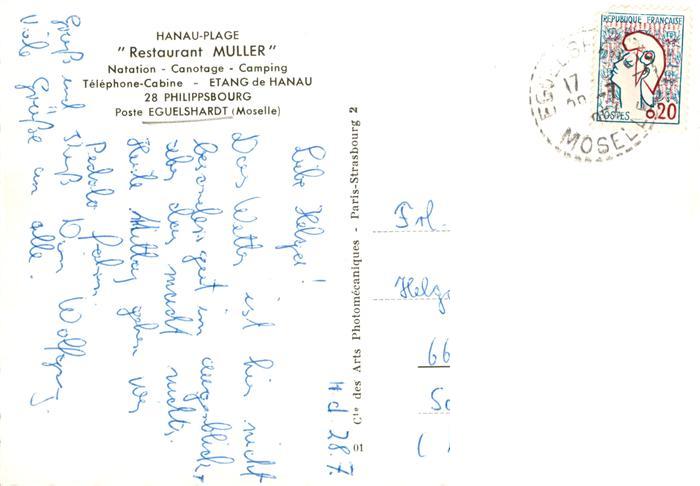 HANAU-PLAGE
"Restaurant MULLER"
Natation - Canotage - Camping
Téléphone-Cabine - ETANG de HANAU
28 PHILIPPSBOURG
Poste EGUELSHARDT (Moselle)
H d 28.7.
Liebe Helga!
Das Wetter ist hier nicht
besonders gut im Augenblick,
aber das macht nichts.
Heute Mittag gehen wir
Pedalo fahren.
Gruß und Kuß Dein Wolfgang.
Viele Grüße an alle.
01 Cte des Arts Photomécaniques - Paris-Strasbourg 2
REPUBLIQUE FRANÇAISE
POSTES 0,20
17
MOSELLE
Frl.
Helga
66
(